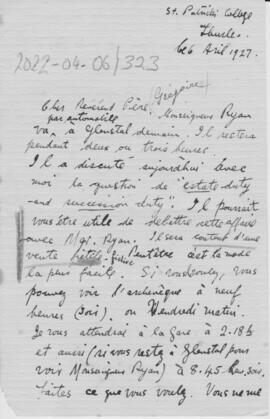 St. Patrick's College
Thurles.
Le 6 Avril 1927.
2022-04-06/323
(Grégoire)
Cher Révérend Père,
par automobile Monseigneur Ryan
va à Glenstal demain. Il restera
pendant deux ou trois heures.
Il a discuté aujourd'hui avec
moi la question de "estate duty
and succession duty". Il pourrait
vous être utile de cette affaire
avec Mgr. Ryan. Il sera content d'une
vente fictive. Peut être c'est la mode
la plus facile. Si vous voulez, vous
pouvez voir l'archevêque à neuf
heures (soir). ou Vendredi matin.
Je vous attendrai à la Gare à 2.18
et aussi (si vous restez à Glenstal pour
voir Monseigneur Ryan) à 8.45 soir.
Faites ce que vous voulez. Vous ne me